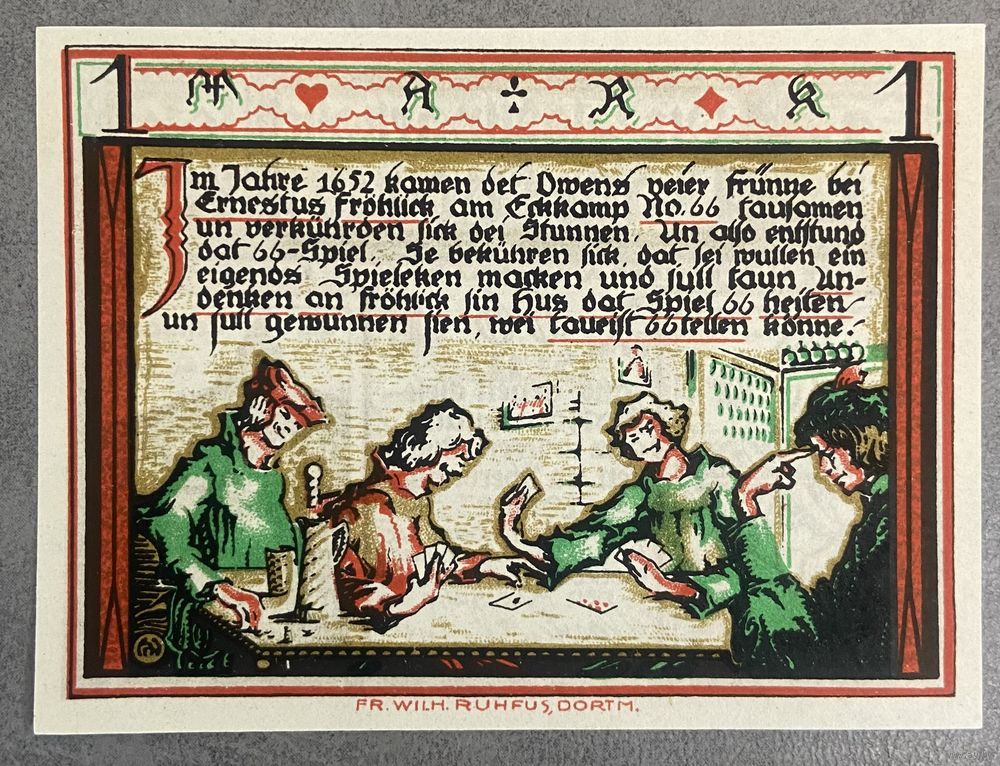 1 M A R K 1
Im Jahre 1652 kamen det Owens veier Frünne bei
Ernestus Fröhlick am Eckkamp No. 66 tausamen
un verkührden sick dei Stunnen. Un also entstund
dat 66-Spiel. Se bekühren sick, dat sei wullen ein
eigends Spieleken macken und sull taun An-
denken an Fröhlick sin Hus dat Spiel 66 heiten
un sull gewunnen sien, wei taueist 66 tellen könne.
FR. WILH. RUHFUS, DORTM.